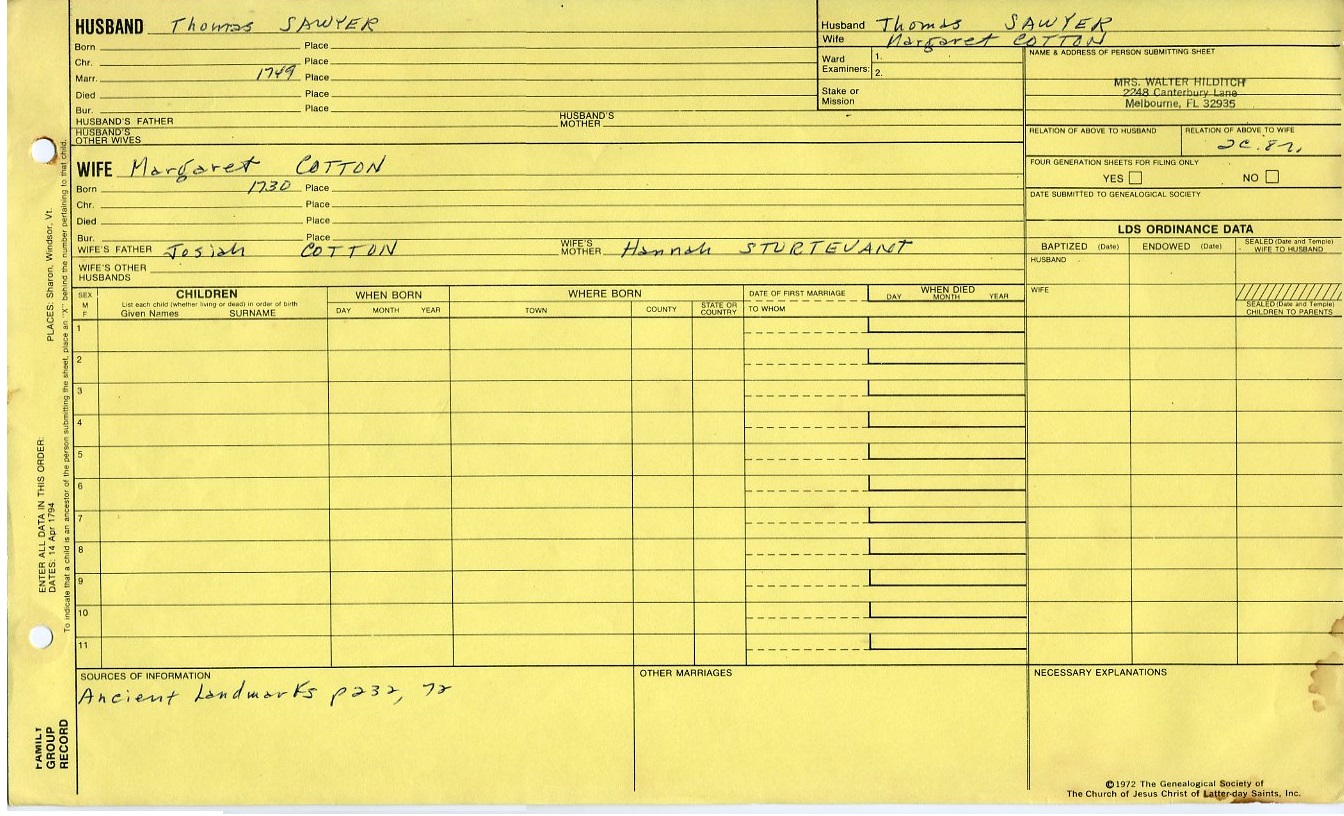 HUSBAND Thomas SAWYER
Born Place
Chr. Place
Marr. 1749 Place
Died Place
Bur. Place
HUSBAND'S FATHER HUSBAND'S MOTHER
HUSBAND'S OTHER WIVES
Husband Thomas SAWYER
Wife Margaret COTTON
Ward Examiners: 1.
2.
Stake or Mission
NAME & ADDRESS OF PERSON SUBMITTING SHEET
MRS. WALTER HILDITCH
2248 Canterbury Lane
Melbourne, FL 32935
RELATION OF ABOVE TO HUSBAND RELATION OF ABOVE TO WIFE
2c. 8r.
FOUR GENERATION SHEETS FOR FILING ONLY
YES NO
DATE SUBMITTED TO GENEALOGICAL SOCIETY
WIFE Margaret COTTON
Born 1730 Place
Chr. Place
Died Place
Bur. Place
WIFE'S FATHER Josiah COTTON WIFE'S MOTHER Hannah STURTEVANT
WIFE'S OTHER HUSBANDS
LDS ORDINANCE DATA
BAPTIZED (Date) ENDOWED (Date) SEALED (Date and Temple) WIFE TO HUSBAND
HUSBAND
WIFE
SEALED (Date and Temple) CHILDREN TO PARENTS
SEX M F
CHILDREN
List each child (whether living or dead) in order of birth
Given Names SURNAME
WHEN BORN
DAY MONTH YEAR
WHERE BORN
TOWN COUNTY STATE OR COUNTRY
DATE OF FIRST MARRIAGE
TO WHOM
WHEN DIED
DAY MONTH YEAR
1
2
3
4
5
6
7
8
9
10
11
SOURCES OF INFORMATION
Ancient Landmarks p232, 72
OTHER MARRIAGES
NECESSARY EXPLANATIONS
©1972 The Genealogical Society of
The Church of Jesus Christ of Latter-day Saints, Inc.
FAMILY GROUP RECORD
ENTER ALL DATA IN THIS ORDER:
DATES: 14 Apr 1794 PLACES: Sharon, Windsor, Vt.
To indicate that a child is an ancestor of the person submitting the sheet, place an "X" behind the number pertaining to that child.